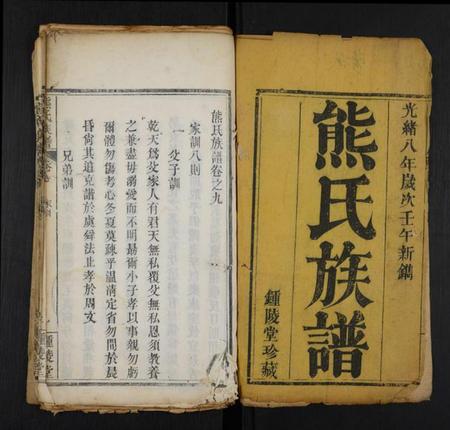 光緒八年歲次壬午新鐫
熊氏族譜
鍾陵堂珍藏
熊氏族譜卷之九
家訓八則
一 父子訓
乾天為父家人有君天無私覆父無私恩須教養
之兼盡毋溺愛而不明最爾小子孝以事親勿虧
爾體勿傷考心冬夏莫疎乎溫凊定省勿間於晨
昏尚其道克諧於虞舜法止孝於周文
一 兄弟訓
熊氏族譜
家訓
一
鍾陵堂